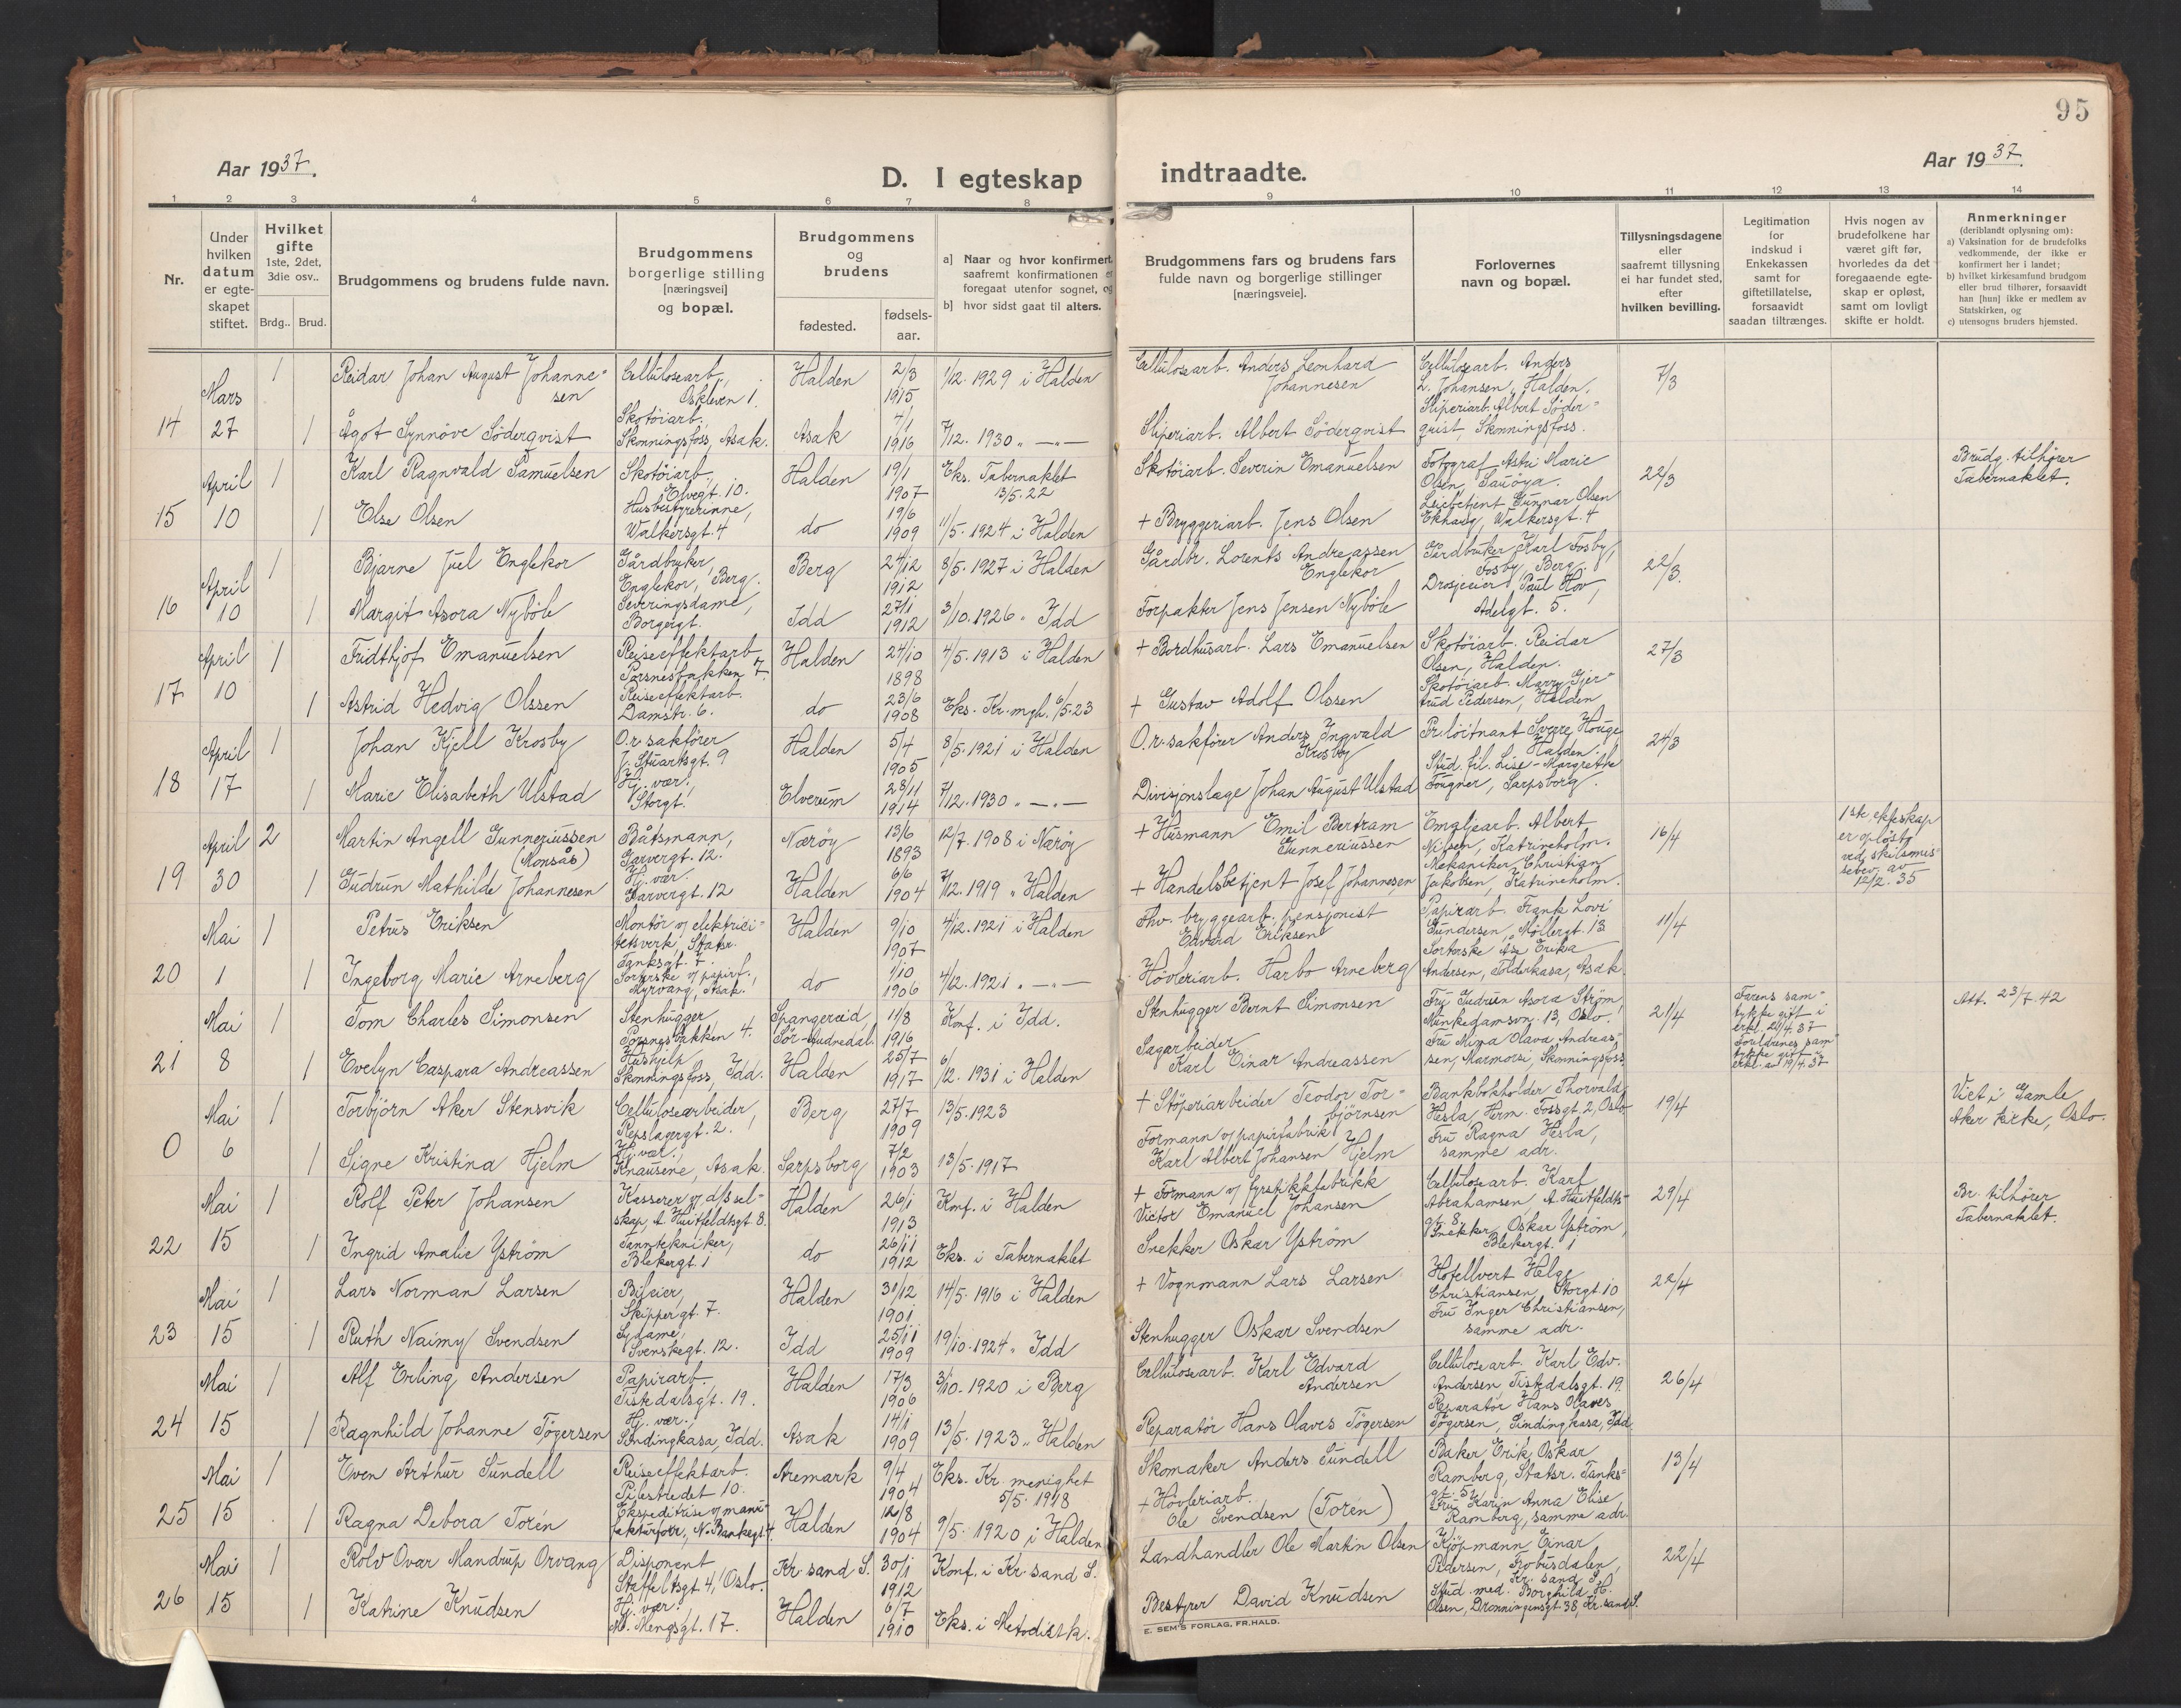 95
Aar 1937.
D. I egteskap indtraadte.
Aar 1937.
1 2 3 4 5 6 7 8 9 10 11 12 13 14
Nr.
Under hvilken datum er egteskapet stiftet.
Hvilket gifte 1ste, 2det, 3die osv..
Brdg.. Brud.
Brudgommens og brudens fulde navn.
Brudgommens borgerlige stilling [næringsvei] og bopæl.
Brudgommens og brudens
fødested.
fødselsaar.
a] Naar og hvor konfirmert saafremt konfirmationen er foregaat utenfor sognet, og
b] hvor sidst gaat til alters.
Brudgommens fars og brudens fars fulde navn og borgerlige stillinger [næringsveie].
Forlovernes navn og bopæl.
Tillysningsdagene eller saafremt tillysning ei har fundet sted, efter hvilken bevilling.
Legitimation for indskud i Enkekassen samt for giftetillatelse, forsaavidt saadan tiltrænges.
Hvis nogen av brudefolkene har været gift før, hvorledes da det foregaaende egteskap er opløst, samt om lovligt skifte er holdt.
Anmerkninger
(deriblandt oplysning om):
a) Vaksination for de brudefolks vedkommende, der ikke er konfirmert her i landet;
b) hvilket kirkesamfund brudgom eller brud tilhører, forsaavidt han [hun] ikke er medlem av Statskirken, og
c) utensogns bruders hjemsted.
14 Mars 27
1 Reidar Johan August Johannesen Cellulosearb., Oskleven 1. Halden 2/3 1915 1/12. 1929 i Halden Cellulosearb. Anders Leonhard Johannesen Cellulosearb. Anders L. Johansen, Halden. 7/3
1 Ågot Synnöve Söderqvist Skotöiarb., Skonningsfoss, Asak. Asak 4/1 1916 7/12. 1930 " —"— Sliperiarb. Albert Söderqvist Sliperiarb. Albert Söderquist, Skonningsfoss.
15 April 10
1 Karl Ragnvald Samuelsen Skotöiarb., Elvegt. 10. Halden 19/1 1907 Eks. Tabernaklet 13/5. 22 Skotöiarb. Severin Emanuelsen Fotograf Astri Marie Olsen, Sauöya. 22/3 Brudg. tilhører Tabernaklet.
1 Else Olsen Husbestyrerinne, Walkersgt. 4 do 19/6 1909 11/5. 1924 i Halden + Bryggeriarb. Jens Olsen Gunnar Olsen Ekhaug, Walkersgt. 4
16 April 10
1 Bjarne Juel Englekor Gårdbruker, Englekor, Berg. Berg 24/12 1912 8/5. 1927 i Halden Gårdbr. Lorents Andreassen Englekor Gårdbruker Karl Fosby, Fosby, Berg. 22/3.
1 Margit Asora Nyböle Serveringsdame, Borgergt. Idd 27/1 1912 3/10. 1926 " Idd Forpakter Jens Jensen Nyböle Drosjeeier Paul Hov, Adelgt. 5.
17 April 10
1 Fridthjof Emanuelsen Reiseeffektarb. Porsnesbakken 7. Halden 24/10 1898 4/5. 1913 i Halden + Bordhusarb. Lars Emanuelsen Skotöiarb. Reidar Olsen, Halden. 27/3
1 Astrid Hedvig Olssen Reiseeffektarb. Damstr. 6. do 23/6 1908 Eks. Kr. mgh. 6/5. 23 + Gustav Adolf Olssen Skotöiarb. Marry Gjertrud Pedersen, Halden
18 April 17
1 Johan Kjell Krosby O.r.sakförer J. Stuartsgt. 9 Halden 5/4 1905 8/5. 1921 i Halden O.r.sakförer Anders Ingvald Krosby Pr.löitnant Sverre Houge, Halden. 24/3
1 Marie Elisabeth Ulstad Hj. vær., Storgt. Elverum 28/11 1914 7/12. 1930 " —"— Divisjonslæge Johan August Ulstad Stud. fil. Lise-Margrethe Fougner, Sarpsborg.
19 April 30
2 Martin Angell Gunneriussen (Monsås) Båtsmann, Garvergt. 12. Nærøy 13/6 1893 12/7. 1908 i Nærøy + Husmann Emil Bertram Gunneriussen Emaljearb. Albert Nilsen, Katrineholm. 16/4 1ste ekteskap er opløst ved skilsmissebev. av 12/2. 35
1 Gudrun Mathilde Johannesen Hj. vær. Garvergt. 12 Halden 6/6 1904 7/12. 1919 " Halden + Handelsbetjent Josef Johannesen Mekaniker Christian Jakobsen, Katrineholm.
20 Mai 1
1 Petrus Eriksen Montör v/ elektricitetsverk, Statsr. Tanksgt. 7. Halden 9/10 1907 4/12. 1921 i Halden Fhv. bryggearb., pensjonist Edvard Eriksen Papirarb. Frank Lovi Gundersen, Möllergt. 13 11/4
1 Ingeborg Marie Arneberg Sorterske v/ papirf., Myrvang, Asak. do 1/10 1906 4/12. 1921 " —"— Hövleriarb. Harbo Arneberg Sorterske Åse Erika Andersen, Folderkasa, Asak.
21 Mai 8
1 Tom Charles Simonsen Stenhugger, Porsnesbakken 4. Spangereid, Sør-Audnedal. 11/8 1916 Konf. i Idd. Stenhugger Bernt Simonsen Fru Gudrun Asora Ström, Munkedamsvn. 13, Oslo. 21/4 Farens samtykke gift i erkl. 20/4. 37 Att. 23/7. 42
1 Evelyn Caspara Andreassen Hushjelp Skonningsfoss, Idd. Halden 25/7 1917 6/12. 1931 i Halden Sagarbeider Karl Einar Andreassen Fru Mina Olava Andreassen, Skonningsfoss. Foreldrenes samtykke gitt i erkl. av 19/4. 37
0 Mai 6
1 Torbjörn Aker Stensvik Cellulosearbeider, Repslagergt. 2. Berg 27/7 1909 13/5. 1923 + Stöperiarbeider Teodor Torbjörnsen Bankbokholder Thorvald Hesla, Herm. Fossgt. 2, Oslo 19/4 Viet i Gamle Aker kirke, Oslo.
1 Signe Kristina Hjelm Hj. vær., Knausene, Asak. Sarpsborg 7/2 1903 13/5. 1917 Formann v/ papirfabrik Karl Albert Johansen Hjelm Fru Ragna Hesla, samme adr.
22 Mai 15
1 Rolf Peter Johansen Kasserer v/ d/s selskap, A. Huitfeldtsgt 8. Halden 26/1 1913 Konf. i Halden + Formann v/ fyrstikkfabrikk Victor Emanuel Johansen Cellulosearb. Karl Abrahamsen, A. Huitfeldtsgt. 8. 29/4 Br. tilhører Tabernaklet.
1 Ingrid Amalie Yström Tanntekniker, Blekergt. 1 do 26/11 1912 Eks. i Tabernaklet Snekker Oskar Yström Snekker Oskar Yström, Blekergt. 1
23 Mai 15
1 Lars Norman Larsen Bileier, Skippergt. 7. Halden 31/12 1901 14/5. 1916 i Halden + Vognmann Lars Larsen Hotellvert Helge Christiansen, Storgt. 10 22/4
1 Ruth Naimy Svendsen Sydame, Svenskegt. 12. Idd 25/11 1909 19/10. 1924 " Idd Stenhugger Oskar Svendsen Fru Inger Christiansen, samme adr.
24 Mai 15
1 Alf Erling Andersen Papirarb. Tistedalsgt. 19. Halden 17/3 1906 3/10. 1920 i Berg Cellulosearb. Karl Edvard Andersen Cellulosearb. Karl Edv. Andersen Tistedalsgt. 19. 26/4
1 Ragnhild Johanne Tögersen Hj. vær., Sindingkasa, Idd. Asak 14/1 1909 13/5. 1923 " Halden Reparatör Hans Olaves Tögersen Reparatör Hans Olaves Tögersen, Sindingkasa, Idd.
25 Mai 15
1 Even Arthur Sundell Reiseeffektarb. Pilestredet 10. Aremark 9/4 1904 Eks. Kr. menighet 5/5. 1918 Skomaker Anders Sundell Baker Erik Oskar Ramberg, Statsr. Tanksgt. 5. 13/4
1 Ragna Debora Torén Ekspeditrise v/ manufakturforr., N. Bankegt 4. Halden 12/8 1904 9/5. 1920 i Halden + Hövleriarb. Ole Svendsen (Torén) Fru Karin Anna Elise Ramberg, samme adr.
26 Mai 15
1 Rolv Ovar Mandrup Orvang Disponent Staffeltsgt. 4, Oslo. Kr. sand S. 30/1 1912 Konf. i Kr. sand S. Landhandler Ole Martin Olsen Kjöpmann Einar Pedersen, Frobusdalen, Kr. sand S. 22/4
1 Katrine Knudsen Hj. vær., M. Mengsgt. 17. Halden 6/7 1910 Eks. i Metodistk. Bestyrer David Knudsen Stud. med. Borghild H. Olsen, Dronningensgt. 38, Kr. sand S.
E. SEM'S FORLAG, FR.HALD.